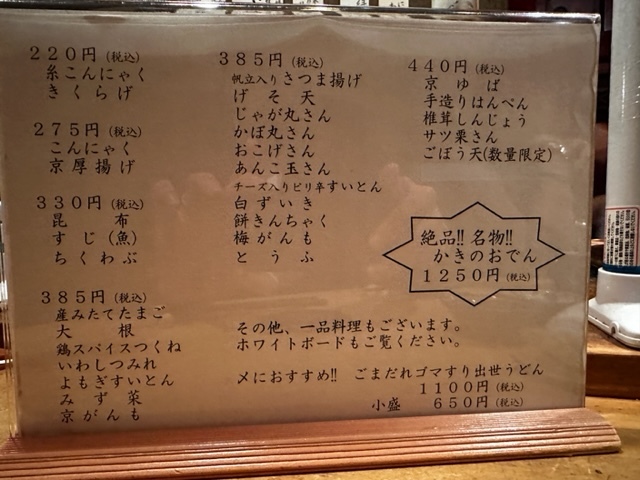 220円(税込)
糸こんにゃく
きくらげ
275円(税込)
こんにゃく
京厚揚げ
330円(税込)
昆布
すじ(魚)
ちくわぶ
385円(税込)
産みたてたまご
大根
鶏スパイスつくね
いわしつみれ
よもぎすいとん
みず菜
京がんも
385円(税込)
帆立入りさつま揚げ
げそ天
じゃが丸さん
かぼ丸さん
おこげさん
あんこ玉さん
チーズ入りピリ辛すいとん
白ずいき
餅きんちゃく
梅がんも
とうふ
440円(税込)
京ゆば
手造りはんぺん
椎茸しんじょう
サツ栗さん
ごぼう天(数量限定)
絶品!! 名物!!
かきのおでん
1250円(税込)
その他、一品料理もございます。
ホワイトボードもご覧ください。
〆におすすめ!! ごまだれゴマすり出世うどん
1100円(税込)
小盛 650円(税込)